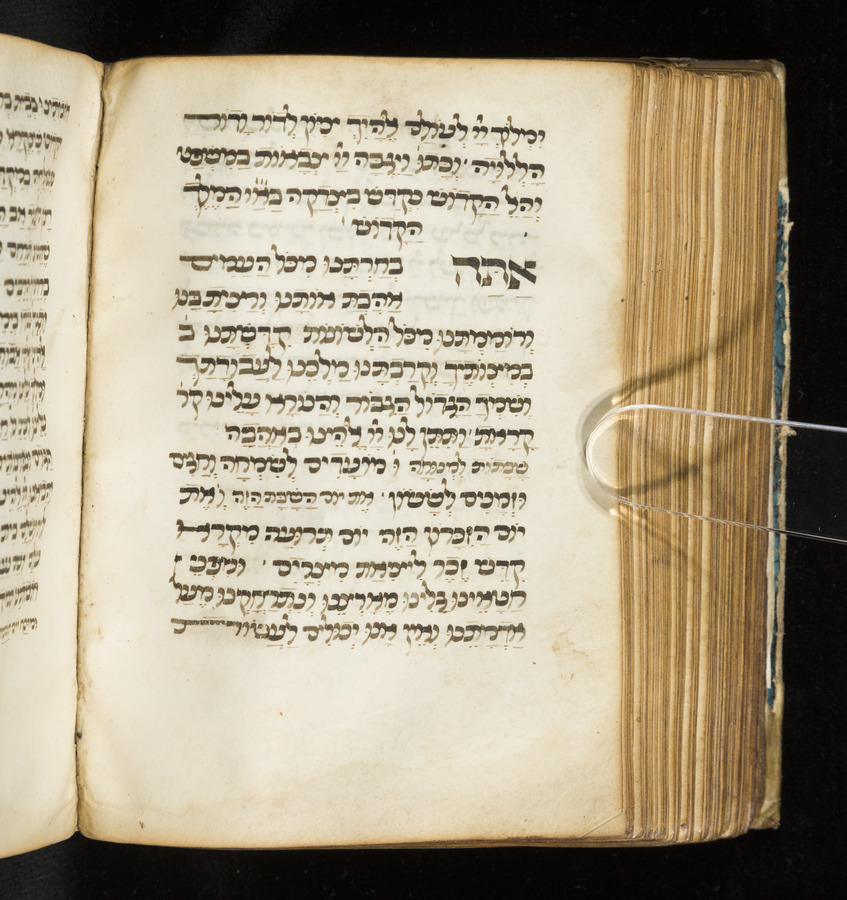 וימלוך יי לעולם להיך ציון לדור ודור
הללויה וכתו ויגבה יי צבאות במשפט
והל הקדוש נקדש בצדקה בא״ו המלך
הקדוש
אתה בחרתנו מכל העמים
אהבת אותנו ורצית בנו
ורוממתנו מכל הלשונות קדשתנו ב
במצותיך וקרבתנו מלכנו לעבודתך
ושמך הגדול הגבור והנורא עלינו קר
קראת ותתן לנו יי להינו באהבה
שבתות למנוחה ו מועדים לשמחה וחגים
וזמנים לששון את יום השבת הזה ואת
יום הזכרון הזה יום תרועה מקרא
קדש זכר ליציאת מצרים ומפני
חטאינו גלינו מארצנו ונתרחקנו מעל
אדמתנו ואין אנו יכולים לעשות